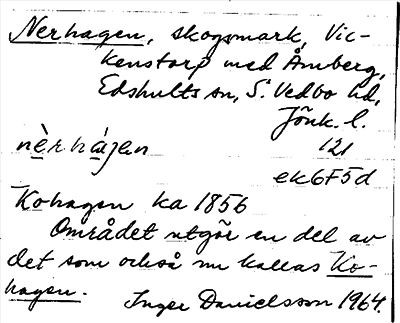 Nerhagen, skogsmark, Vic-
kenstorp med Åmberg,
Edshults sn, S. Vedbo hd,
Jönk. l.
nèrhájen 121
ek6F5d
Kohagen ka 1856
Området utgör en del av
det som också nu kallas Ko-
hagen.
Inger Danielsson 1964.